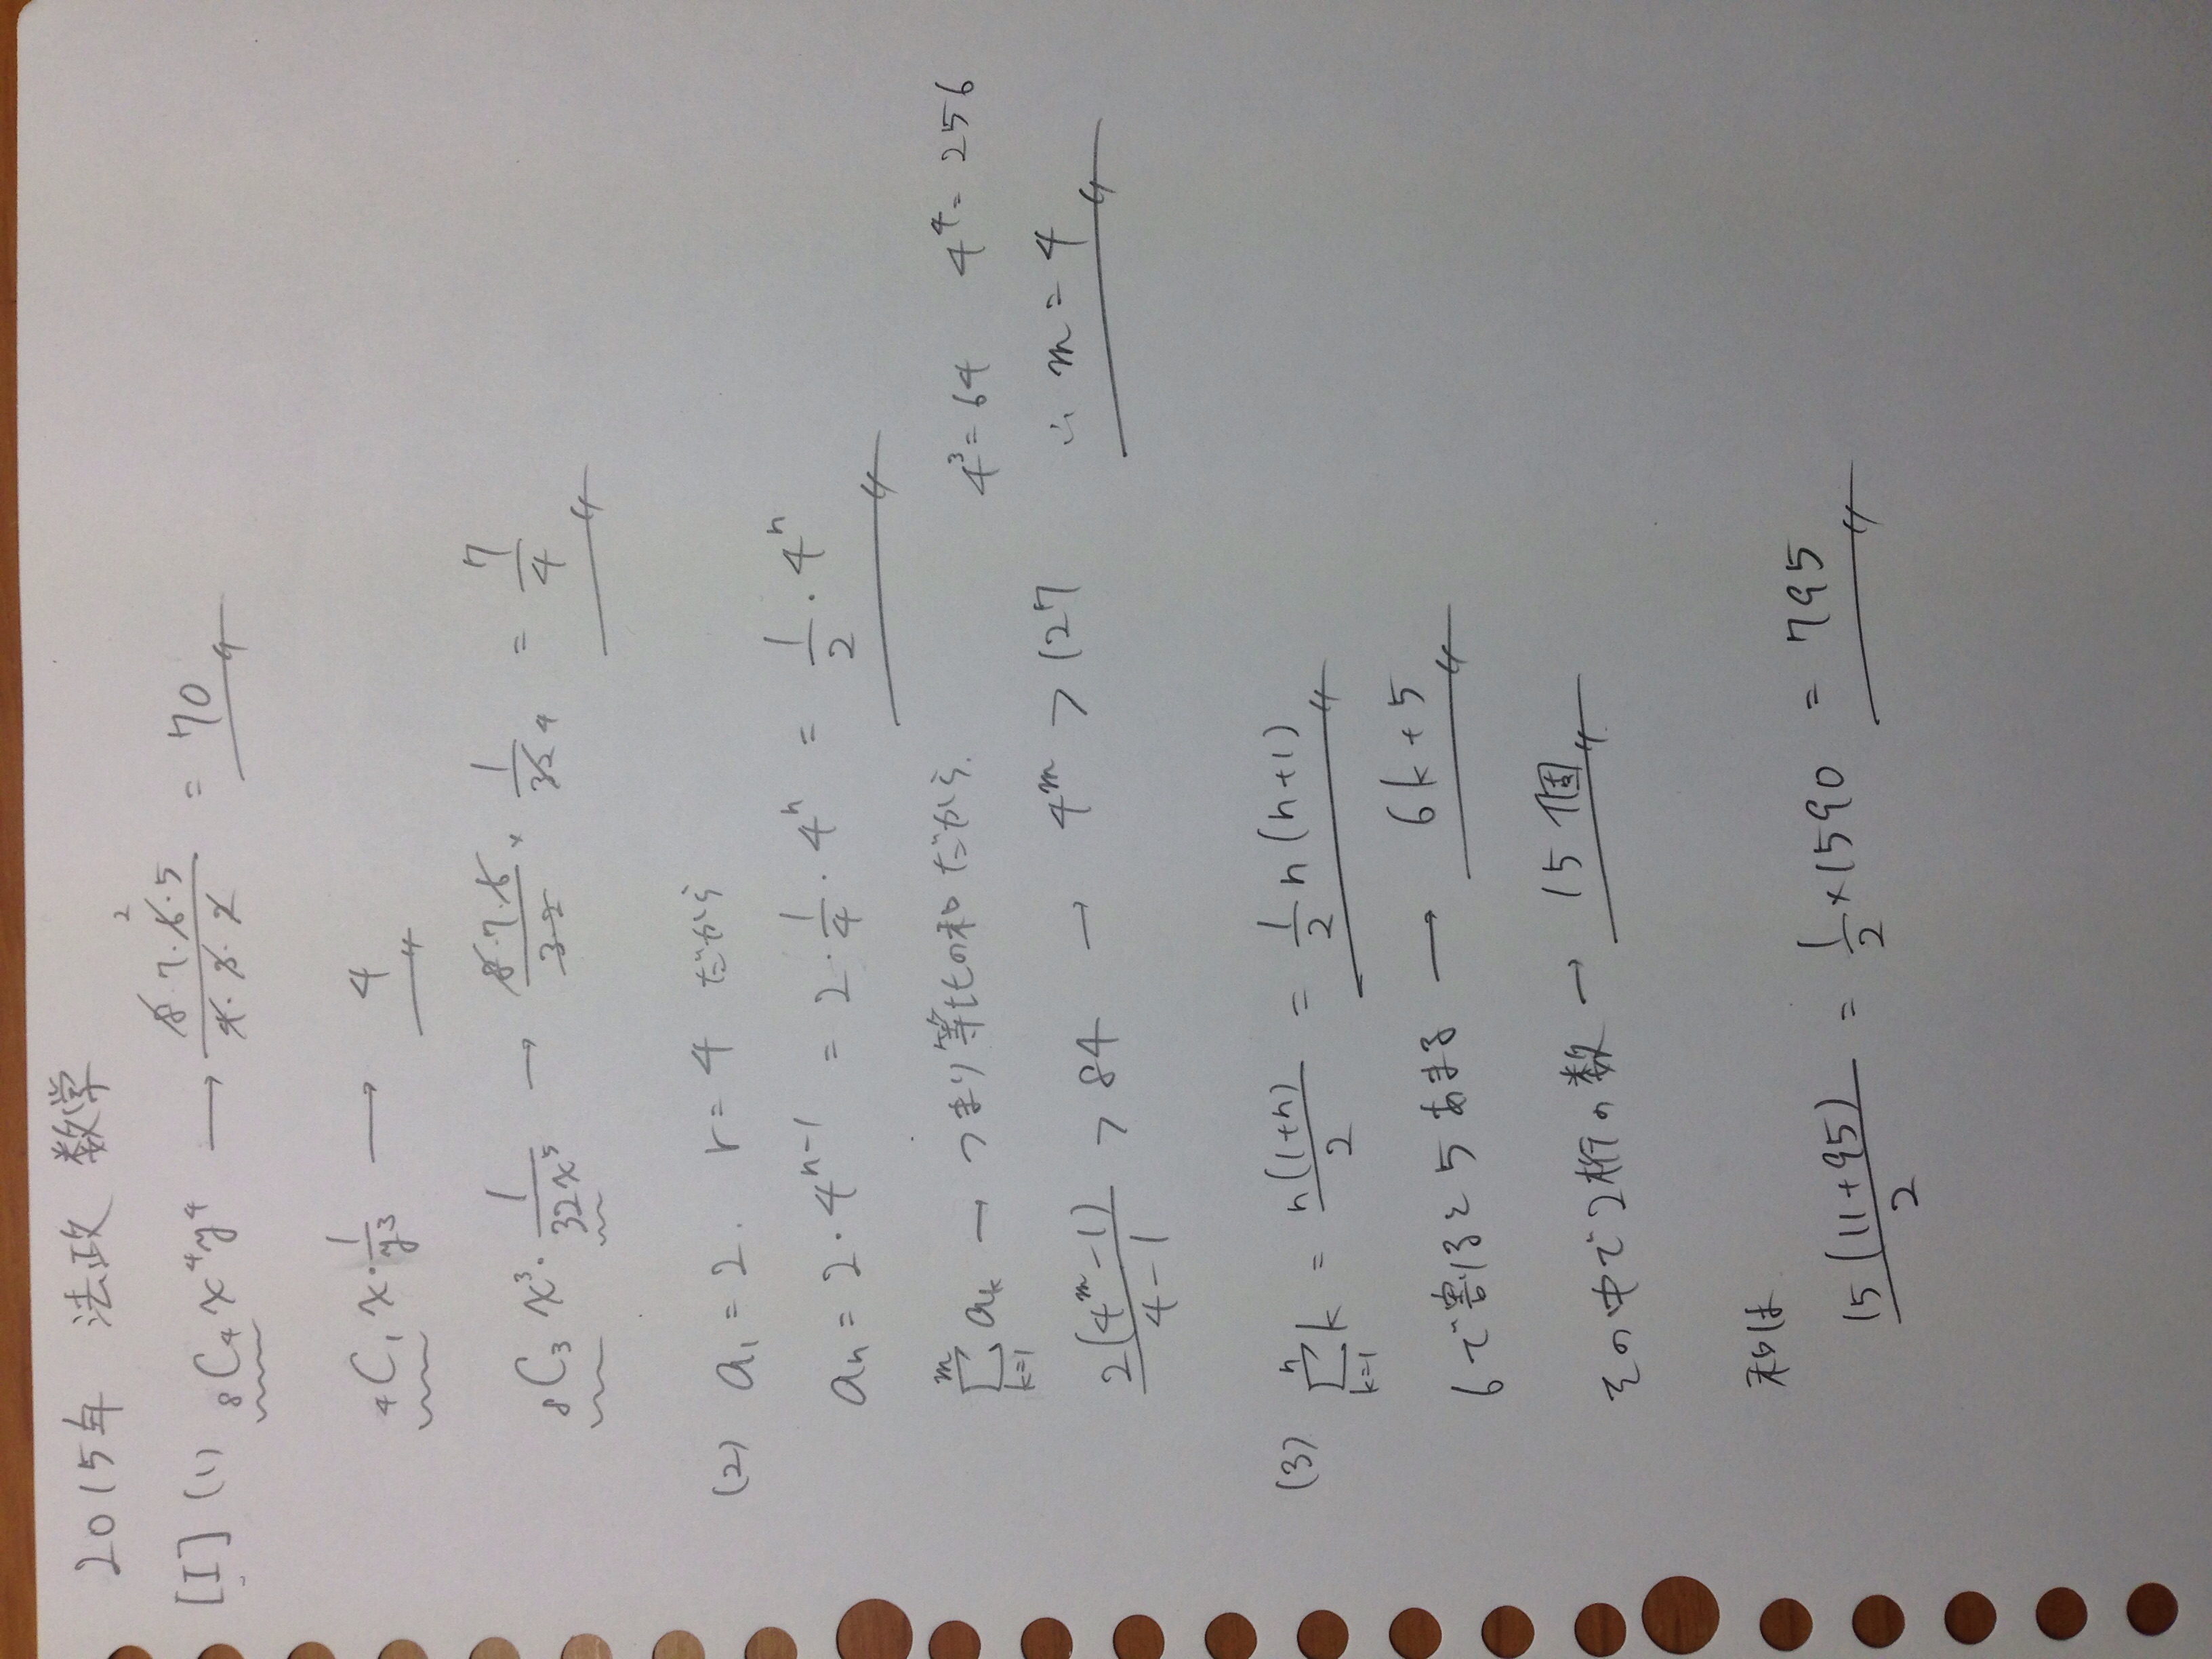 2015年 法政 数学
[I] (1) ₈C₄x⁴y⁴ → 8·7·6·5/4·3·2 2 = 70
₄C₁x·1/y³ → 4
₈C₃x³·1/32x⁵ → 8·7·6/3·2 × 1/32 4 = 7/4
(2) a₁=2. r=4 だから
aₙ=2·4ⁿ⁻¹ = 2·1/4·4ⁿ = 1/2·4ⁿ
∑[k=1→m] aₖ → つまり等比の和だから. 4³=64 4⁴=256
2(4ᵐ-1)/4-1 > 84 → 4ᵐ > 127 ∴ m=4
(3) ∑[k=1→n] k = n(1+n)/2 = 1/2 n(n+1)
6で割ると5あまる → 6k+5
その中で2桁の数 → 15個
和は
15(11+95)/2 = 1/2×1590 = 795